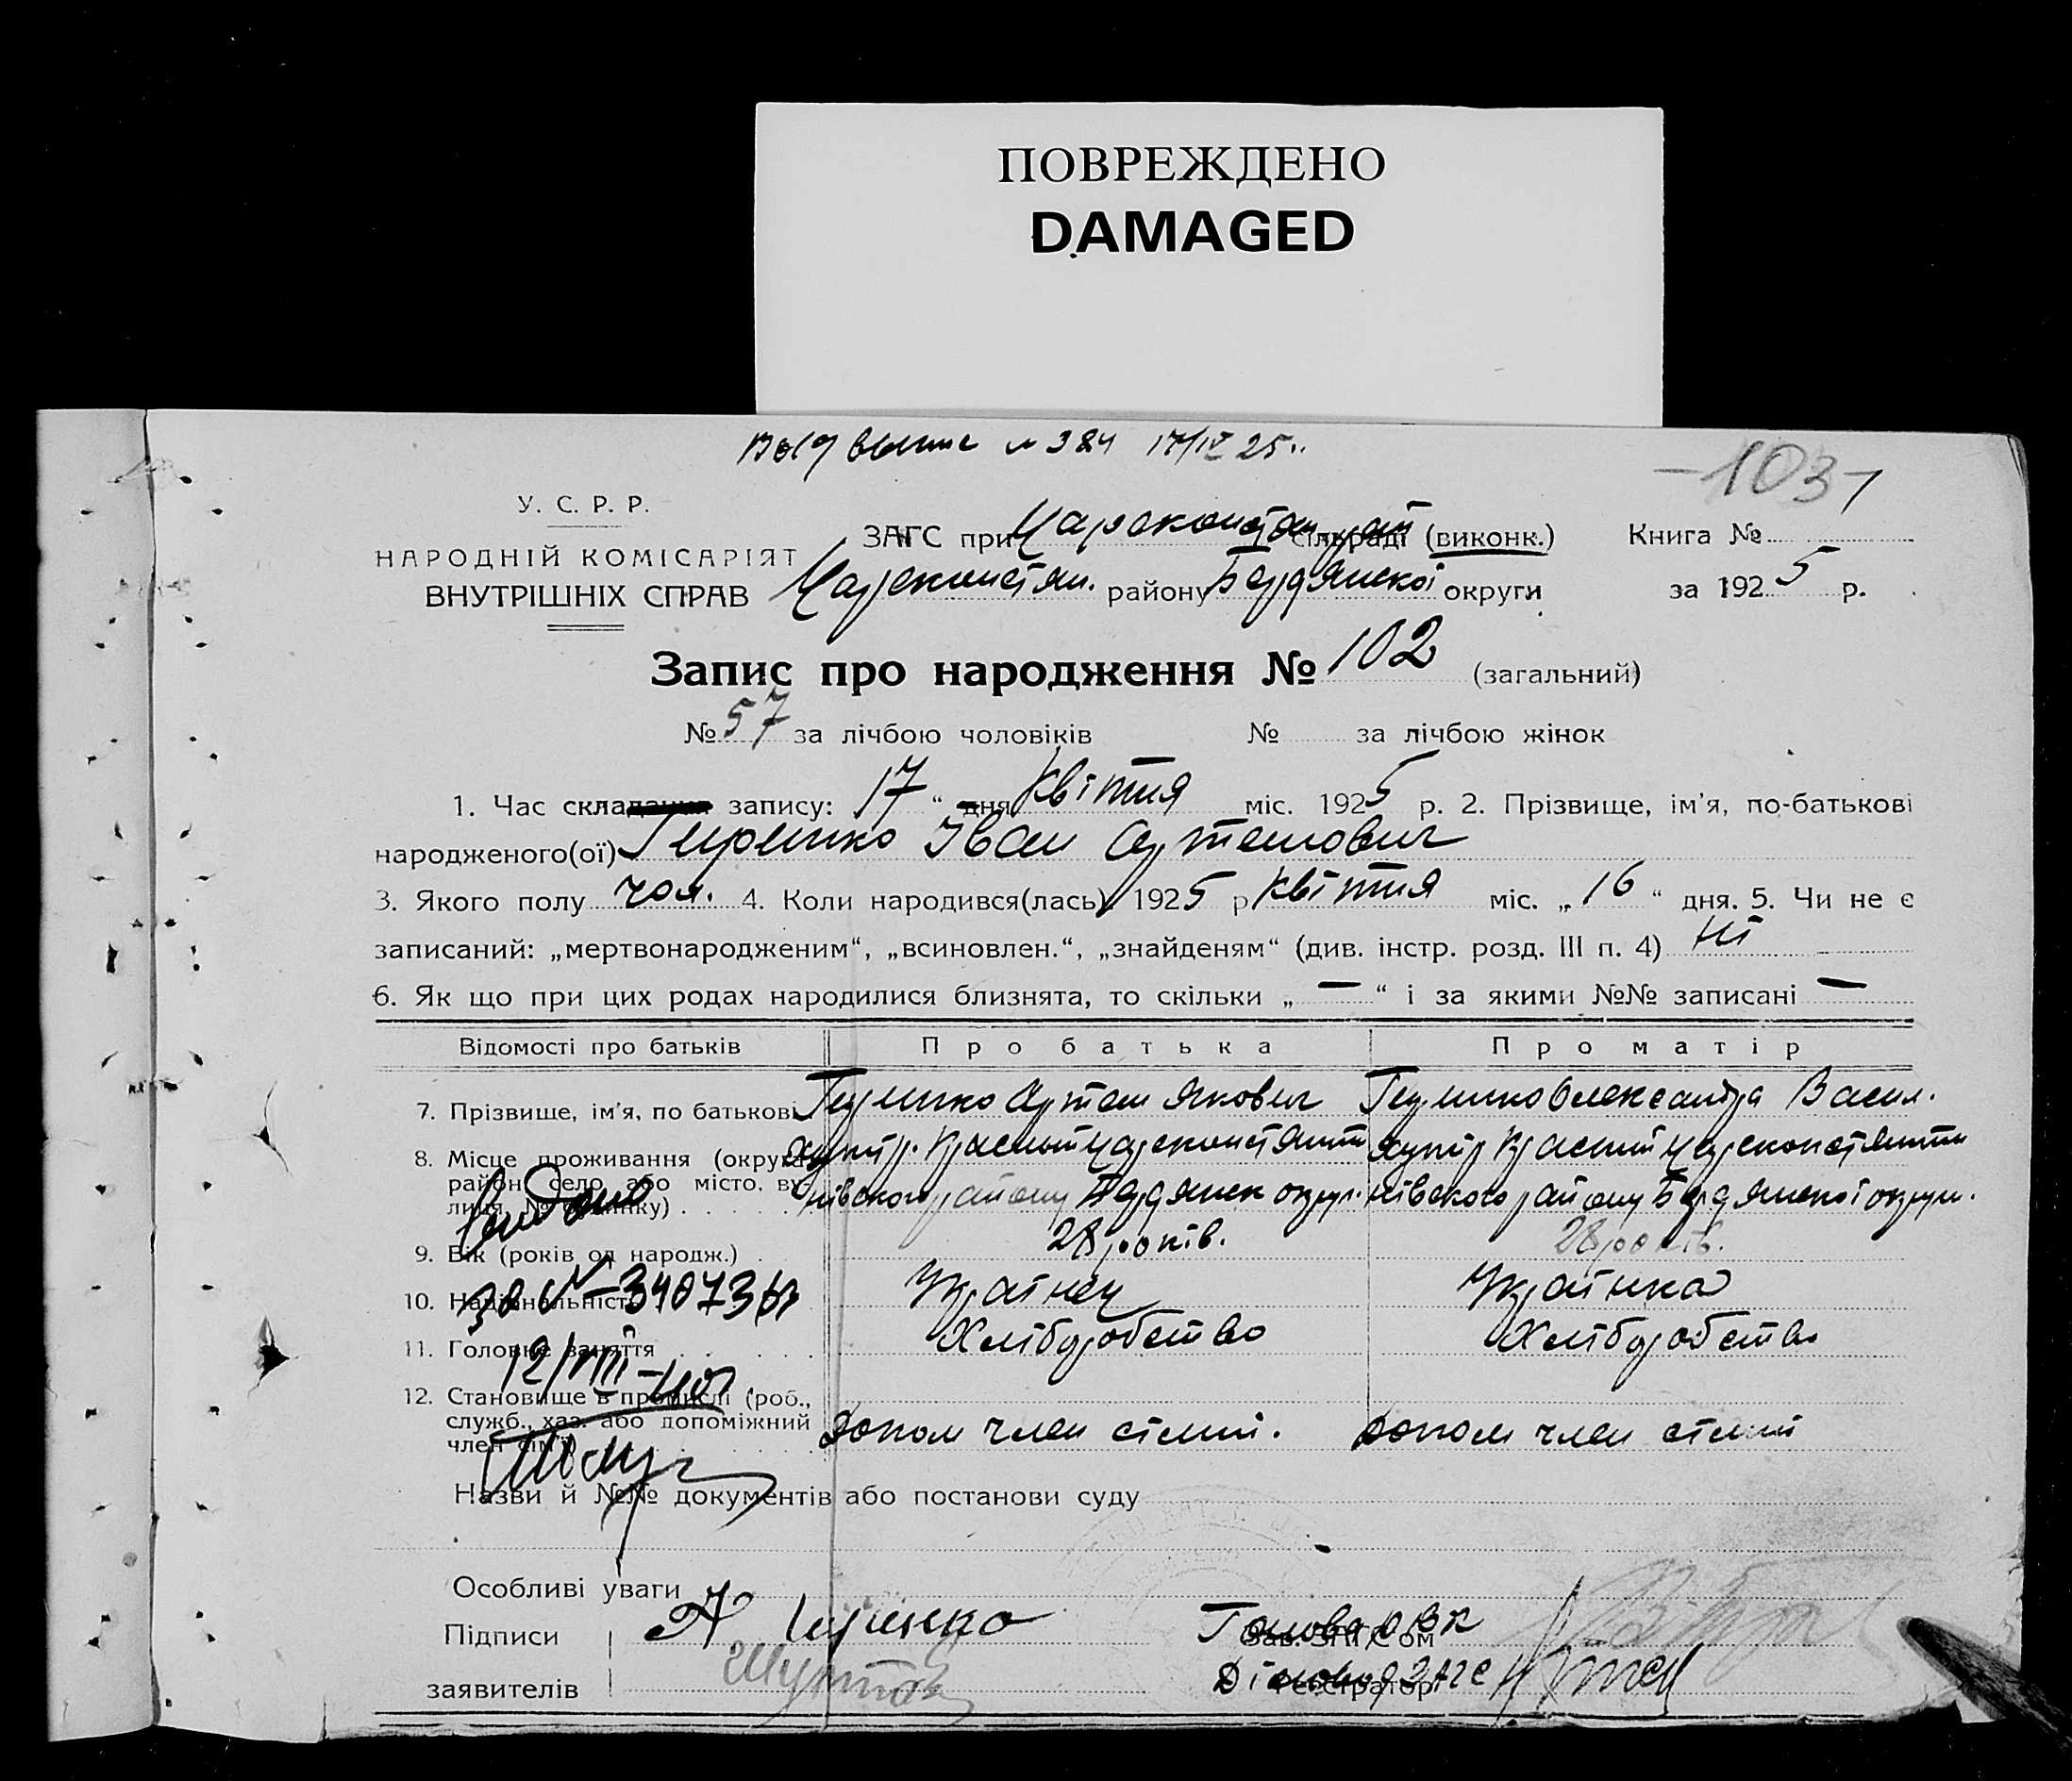 ПОВРЕЖДЕНО
DAMAGED
выпис № 384 17/IV 25
-103-
У. С. Р. Р.
НАРОДНІЙ КОМІСАРІЯТ
ВНУТРІШНІХ СПРАВ
ЗАГС при Царекон сільраді (виконк.) Книга №
Цареконстян. району Бердянської округи за 1925 р.
Запис про народження № 102 (загальний)
№ 57 за лічбою чоловіків № за лічбою жінок
1. Час складання запису: 17 " дня Квітня міс. 1925 р. 2. Прізвище, ім'я, по-батькові
народженого(ої) Іван Артемович
3. Якого полу чол. 4. Коли народився(лась) 1925 р Квітня міс. „ 16 " дня. 5. Чи не є
записаний: „мертвонародженим", „всиновлен.", „знайденям" (див. інстр. розд. III п. 4) Ні
6. Як що при цих родах народилися близнята, то скільки „ — " і за якими №№ записані —
Відомості про батьків Про батька Про матір
7. Прізвище, ім'я, по батькові Артем Якович Олександра Васил.
8. Місце проживання (округа
район, село, або місто, ву-
лиця, № будинку)
хутір Красний Цареконстянти
нівського району Бердянськ округ.
хутір Красний Цареконстянти
нівського району Бердянської округи.
9. Вік (років од народж.) 28 років. 28 років.
10. Національність Українець Українка
11. Головне заняття Хліборобство Хліборобство
12. Становище в промислі (роб.,
служб., хаз. або допоміжний
член сім'ї) допом член сімії. допом член сімії
12/VIII-40
Назви й №№ документів або постанови суду
Особливі уваги
Підписи
заявителів
Голова РВК
Зав. ЗАГС'ом
Діловод ЗАГС
Реєстратор